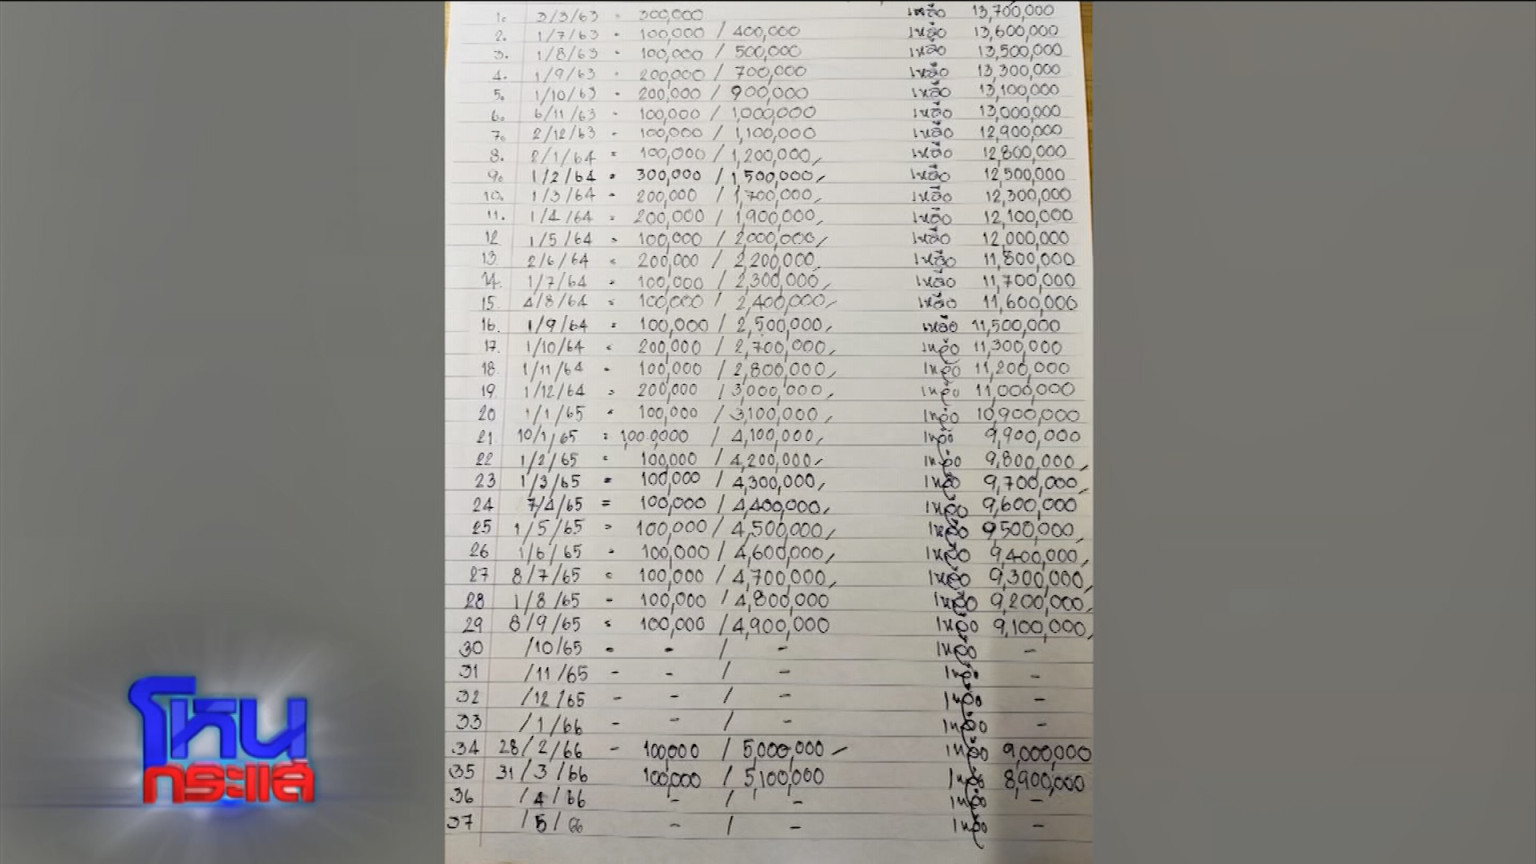 1. 3/3/63 - 300,000 เหลือ 13,700,000
2. 1/7/63 - 100,000 / 400,000 เหลือ 13,600,000
3. 1/8/63 - 100,000 / 500,000 เหลือ 13,500,000
4. 1/9/63 - 200,000 / 700,000 เหลือ 13,300,000
5. 1/10/63 - 200,000 / 900,000 เหลือ 13,100,000
6. 6/11/63 - 100,000 / 1,000,000 เหลือ 13,000,000
7. 2/12/63 - 100,000 / 1,100,000 เหลือ 12,900,000
8. 2/1/64 = 100,000 / 1,200,000 เหลือ 12,800,000
9. 1/2/64 = 300,000 / 1,500,000 เหลือ 12,500,000
10. 1/3/64 - 200,000 / 1,700,000 เหลือ 12,300,000
11. 1/4/64 = 200,000 / 1,900,000 เหลือ 12,100,000
12 1/5/64 = 100,000 / 2,000,000 เหลือ 12,000,000
13. 2/6/64 = 200,000 / 2,200,000 เหลือ 11,800,000
14. 1/7/64 - 100,000 / 2,300,000 เหลือ 11,700,000
15. 4/8/64 = 100,000 / 2,400,000 เหลือ 11,600,000
16. 1/9/64 = 100,000 / 2,500,000 เหลือ 11,500,000
17. 1/10/64 = 200,000 / 2,700,000 เหลือ 11,300,000
18. 1/11/64 - 100,000 / 2,800,000 เหลือ 11,200,000
19. 1/12/64 = 200,000 / 3,000,000 เหลือ 11,000,000
20 1/1/65 = 100,000 / 3,100,000 เหลือ 10,900,000
21 10/1/65 = 100,0000 / 4,100,000 เหลือ 9,900,000
22 1/2/65 = 100,000 / 4,200,000 เหลือ 9,800,000
23 1/3/65 = 100,000 / 4,300,000 เหลือ 9,700,000
24 7/4/65 = 100,000 / 4,400,000 เหลือ 9,600,000
25 1/5/65 = 100,000 / 4,500,000 เหลือ 9,500,000
26 1/6/65 - 100,000 / 4,600,000 เหลือ 9,400,000
27 8/7/65 = 100,000 / 4,700,000 เหลือ 9,300,000
28 1/8/65 - 100,000 / 4,800,000 เหลือ 9,200,000
29 8/9/65 = 100,000 / 4,900,000 เหลือ 9,100,000
30 /10/65 - - / - เหลือ -
31 /11/65 - - / - เหลือ -
32 /12/65 - - / - เหลือ -
33 /1/66 - - / - เหลือ -
34 28/2/66 - 100,000 / 5,000,000 เหลือ 9,000,000
35 31/3/66 100,000 / 5,100,000 เหลือ 8,900,000
36 /4/66 - / - เหลือ -
37 /5/66 - / - เหลือ -
โหน
กระแส